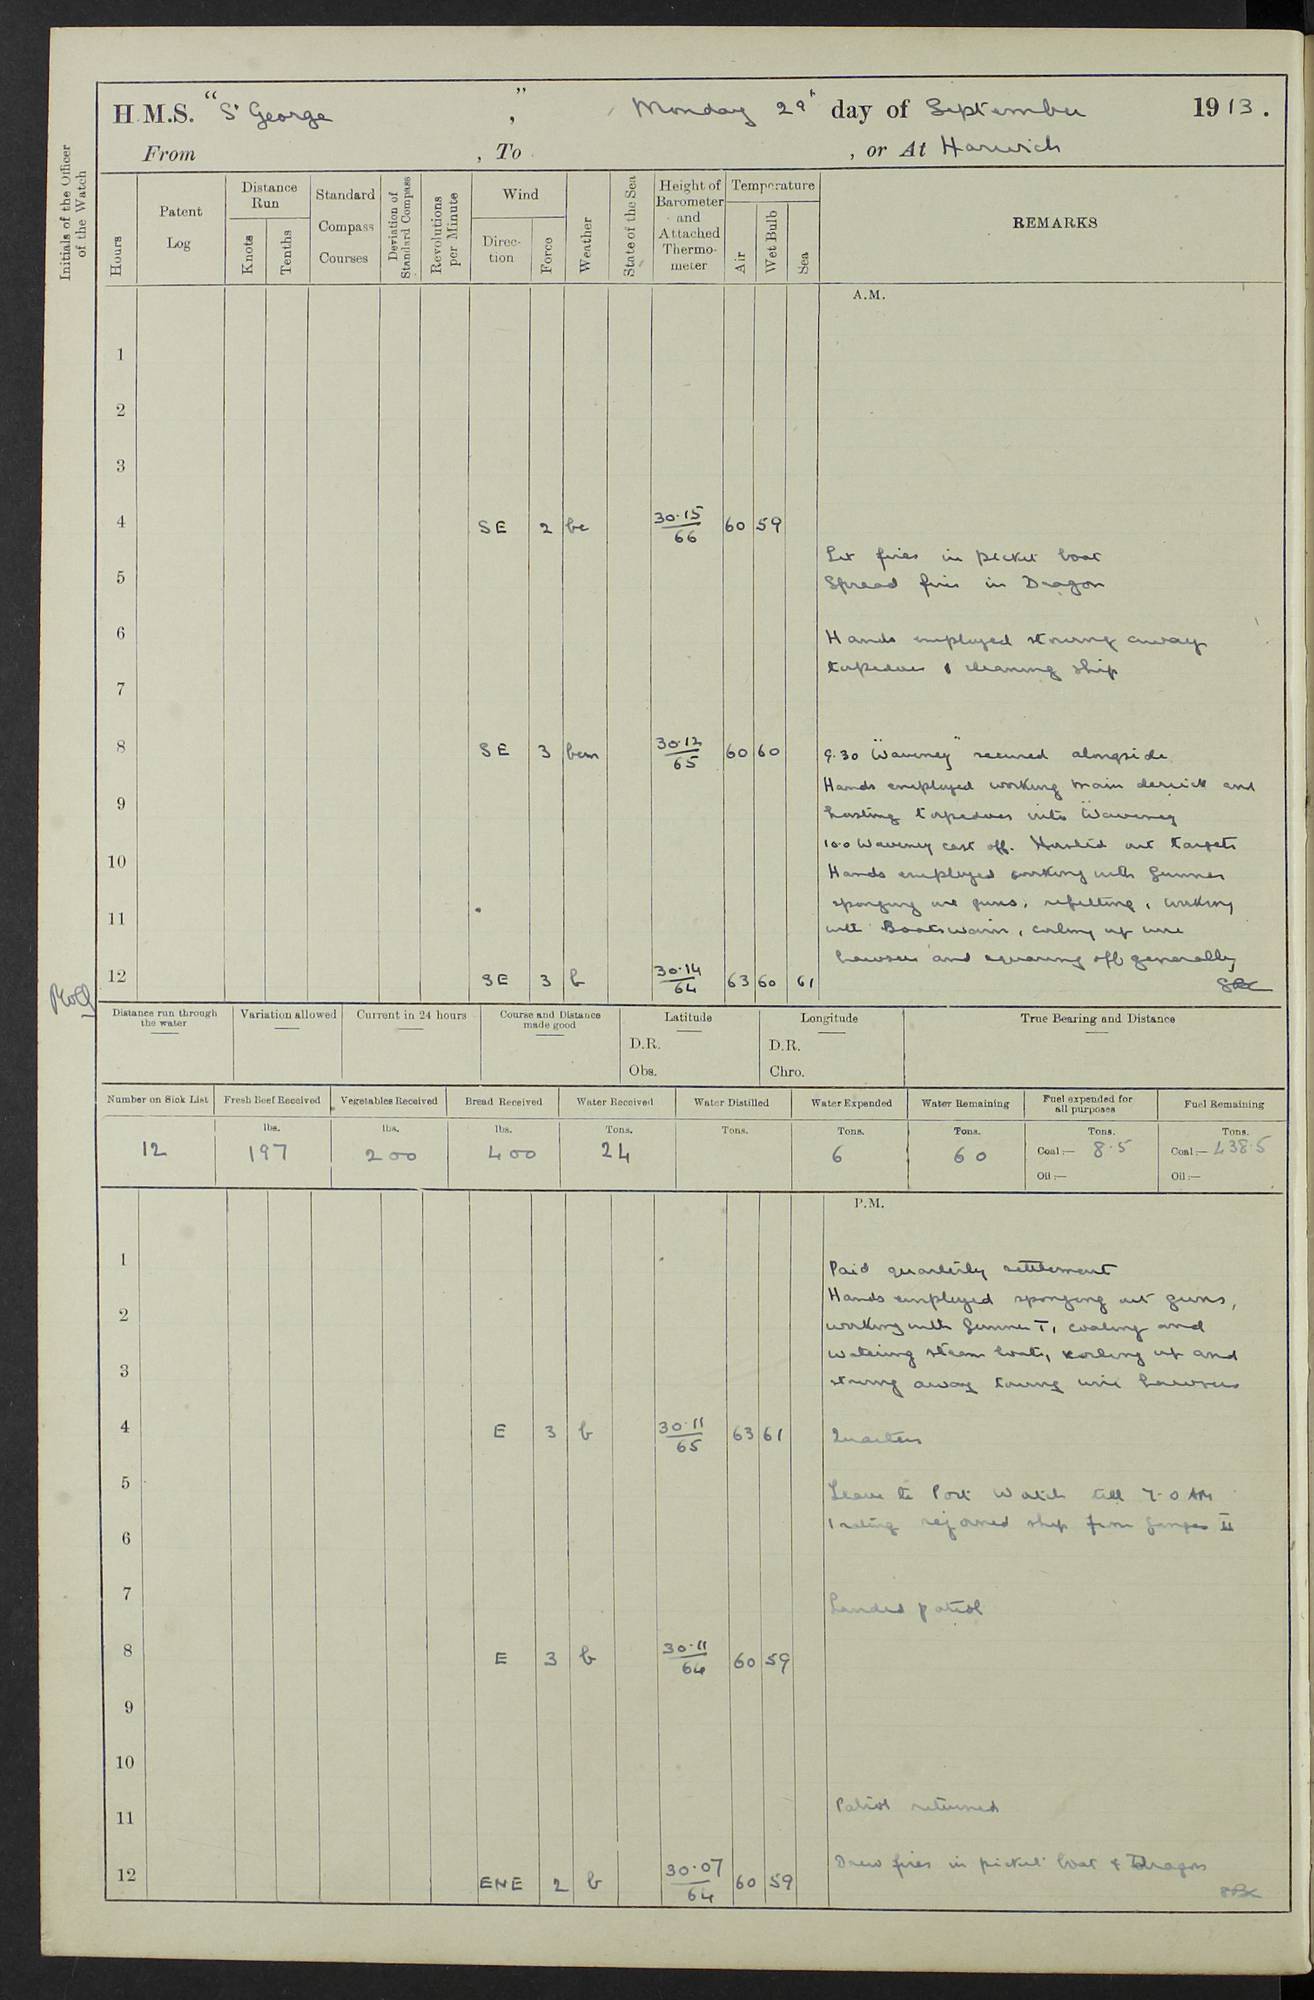 H.M.S. "St George", Monday 29th day of September 1913.
From , To , or At Harwich
Initials of the Officer of the Watch
Hours
Patent Log
Distance Run
Knots
Tenths
Standard Compass Courses
Deviation of Standard Compass
Revolutions per Minute
Wind
Direction
Force
Weather
State of the Sea
Height of Barometer and Attached Thermometer
Temperature
Air
Wet Bulb
Sea
REMARKS
A.M.
1
2
3
4 SE 2 bc 30.15/66 60 59
Lit fires in picket boat
5 Spread fires in Dragon
6 Hands employed stowing away
torpedoes & cleaning ship
7
8 SE 3 bcm 30.12/65 60 60 9.30 "Waveney" secured alongside
Hands employed working main derrick and
9 hoisting torpedoes into "Waveney"
10.0 Waveney cast off. Hoisted out targets
10 Hands employed working with Gunner
sponging out guns, refitting, working
11 with Boatswain, coiling up wire
hawsers and squaring off generally
12 SE 3 b 30.14/64 63 60 61
Distance run through the water
Variation allowed
Current in 24 hours
Course and Distance made good
Latitude
D.R.
Obs.
Longitude
D.R.
Chro.
True Bearing and Distance
Number on Sick List
Fresh Beef Received
Vegetables Received
Bread Received
Water Received
Water Distilled
Water Expended
Water Remaining
Fuel expended for all purposes
Fuel Remaining
lbs. lbs. lbs. Tons. Tons. Tons. Tons. Tons. Tons.
12 197 200 400 24 6 60 Coal:— 8.5 Coal:— 438.5
Oil:— Oil:—
P.M.
1 Paid quarterly settlement
Hands employed sponging out guns,
2 working with Gunner T, coaling and
watering steam boats, coiling up and
3 stowing away towing wire hawsers
4 E 3 b 30.11/65 63 61 Quarters
5 Leave to Port Watch till 7.0 AM
1 rating rejoined ship from Ganges II
6
7 Landed patrol
8 E 3 b 30.11/64 60 59
9
10
11 Patrol returned
12 ENE 2 b 30.07/64 60 59 Drew fires in picket boat & Dragon